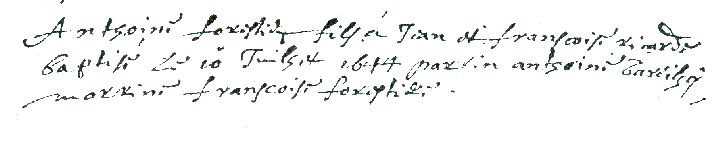 Anthoine forestier fils à Jean et françoise ricarde
baptisé Le 10 Juilhet 1644 parrin anthoine
marrine françoise forestiere .